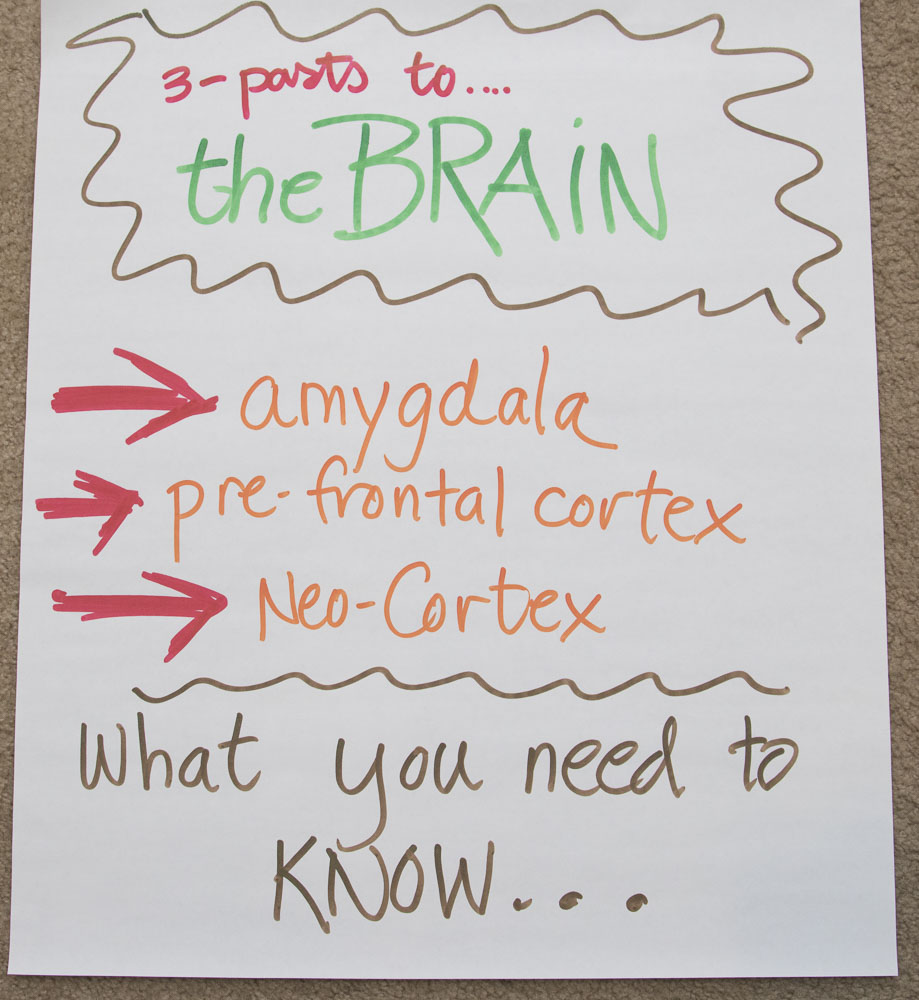 3-parts to....
the BRAiN
amygdala
pre-frontal cortex
Neo-Cortex
What you need to
KNOW...